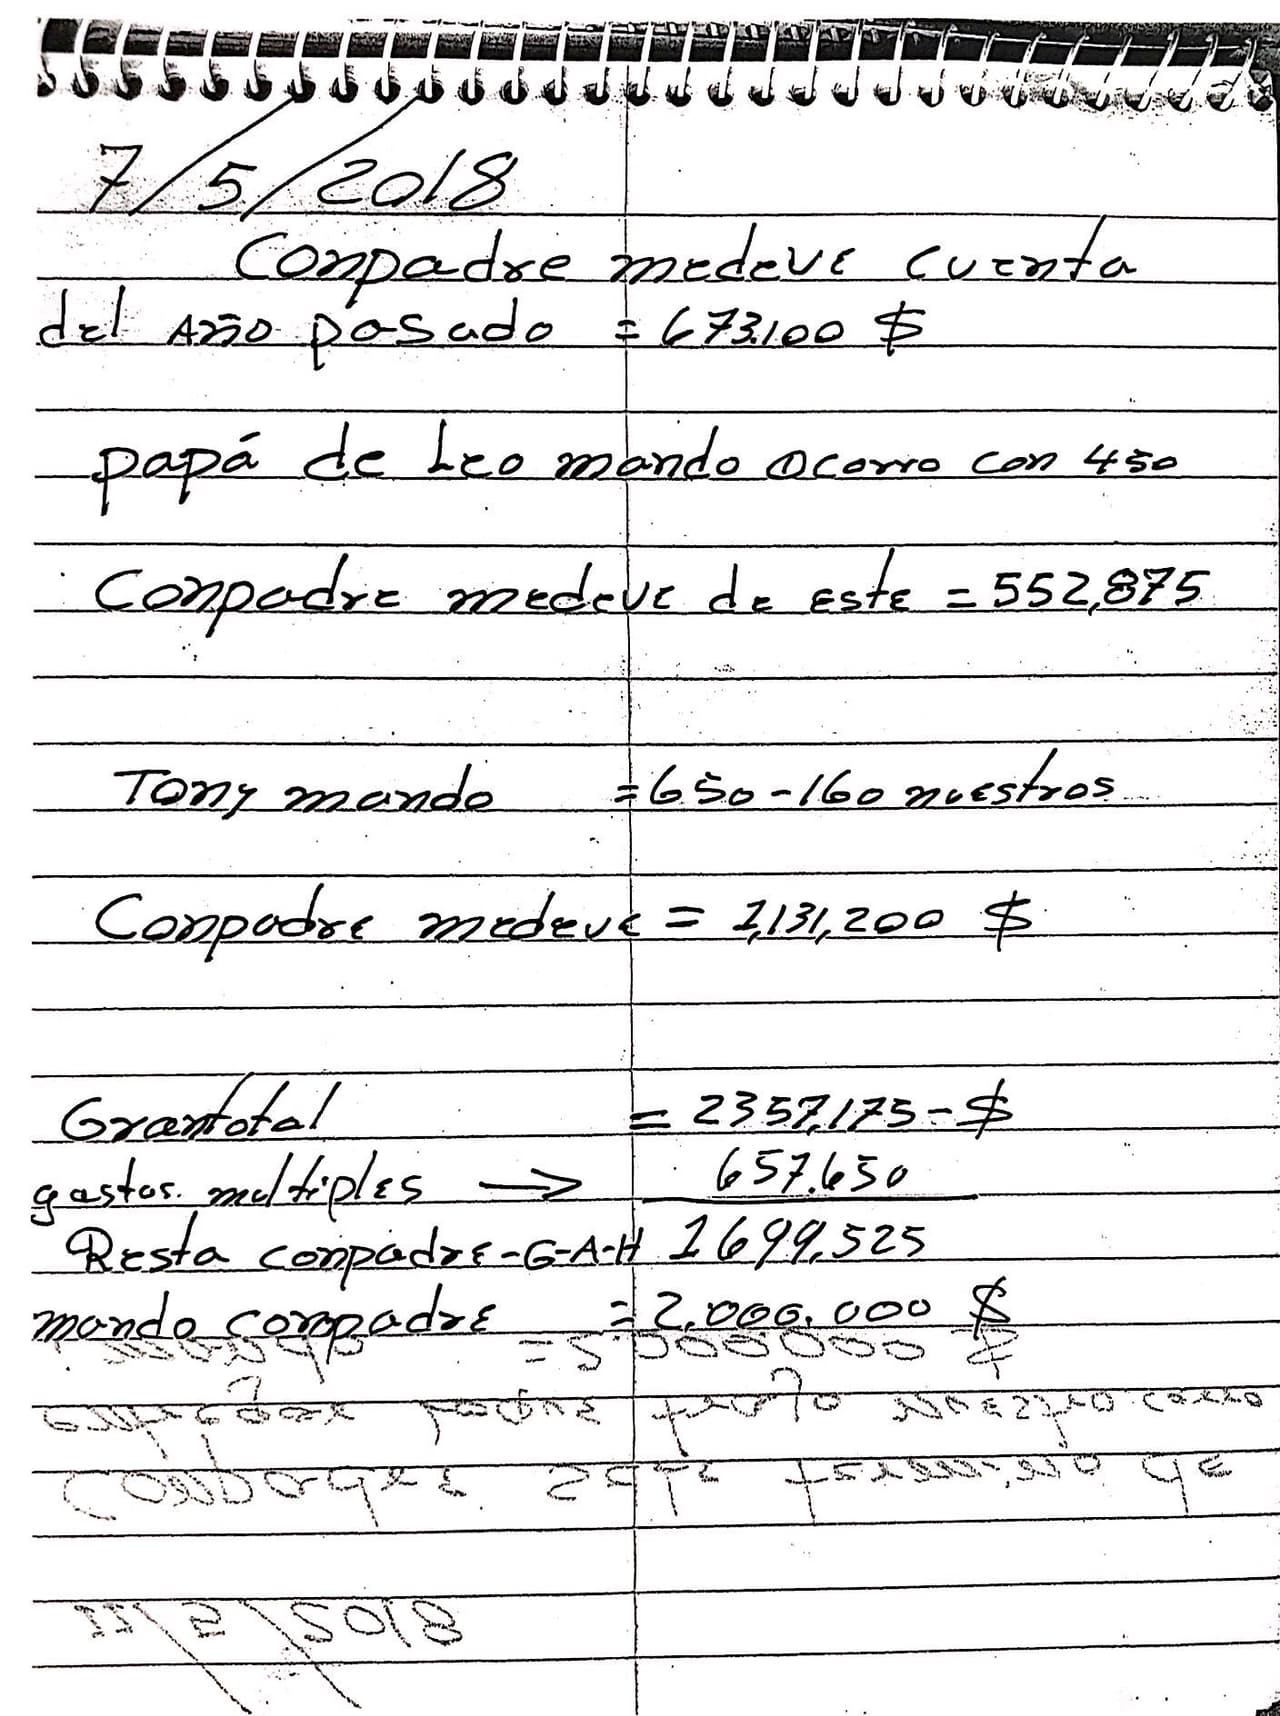 7/5/2018
Conpadre medeve cuenta
del Año pasado = 673.100 $
papá de Leo mando ocorro con 450
Conpadre medeve de este = 552,875
Tony mando = 650-160 nuestros
Conpadre medeve = 1,131,200 $
Grantotal = 2357,175-$
gastos. multiples → 657.650
Resta conpadre-G-A-H 1699,525
mando compadre = 2.000.000 $